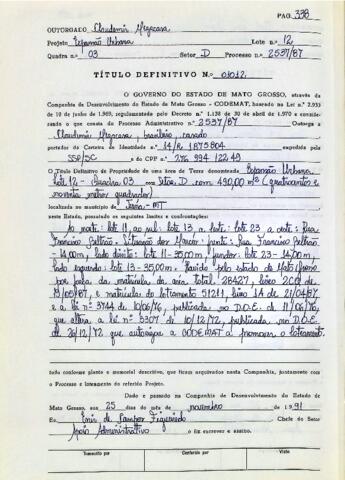 PAG. 338
OUTORGADO Claudemir
Projeto Expansão Urbana Lote n.º 12
Quadra n.º 03 Setor D Processo n.º 2537/87
TÍTULO DEFINITIVO N.º 03012
O GOVERNO DO ESTADO DE MATO GROSSO, através da
Companhia de Desenvolvimento do Estado de Mato Grosso - CODEMAT, baseado na Lei n.º 2.933
de 10 de junho de 1969, regulamentada pelo Decreto n.º 1.138 de 30 de abril de 1970 e considerando
o que consta do Processo Administrativo n.º 2537/87 Outorga a
Claudemir , brasileiro, casado
portador da Carteira de Identidade n.º 14/R 1.875804 expedida pela
SSP/SC e do CPF n.º 276 994 122 49
O Título Definitivo de Propriedade de uma área de Terra denominada Expansão Urbana
Lote 12 - Quadra 03 com Setor D com 490,00 m² (quatrocentos e
noventa metros quadrados)
localizada no município de - MT
neste Estado, possuindo os seguintes limites e confrontações:
Ao norte: lote 11, ao sul: lote 13, a leste: lote 23 a oeste: Rua
Francisco Beltrão - Situação dos Marcos: frente: Rua Francisco Beltrão
- 14,00m, lado direito: lote 11 - 35,00m, fundos: lote 23 - 14,00m,
lado esquerdo: lote 13 - 35,00m. Havido pelo estado de Mato Grosso
por força da matrícula da área total 28427, livro 2CQ de
19/05/87, e matrícula do loteamento 51211 livro 1A de 21/04/87
e a lei nº 3744 de 10/06/76, publicada no D.O.E. de 11/06/76,
que altera a lei nº 3307 de 10/12/72, publicada no D.O.E.
de 20/12/72 que autoriza a CODEMAT a promover o loteamento.
tudo conforme planta e memorial descritivo, que ficam arquivados nesta Companhia, juntamente com
o Processo e loteamento do referido Projeto.
Dado e passado na Companhia de Desenvolvimento do Estado de
Mato Grosso, aos 25 dias do mês de novembro de 1991
Eu, de Campos Figueiredo Chefe do Setor
Apoio Administrativo o fiz escrever e assino.
Transcrito por Conferido por Visto